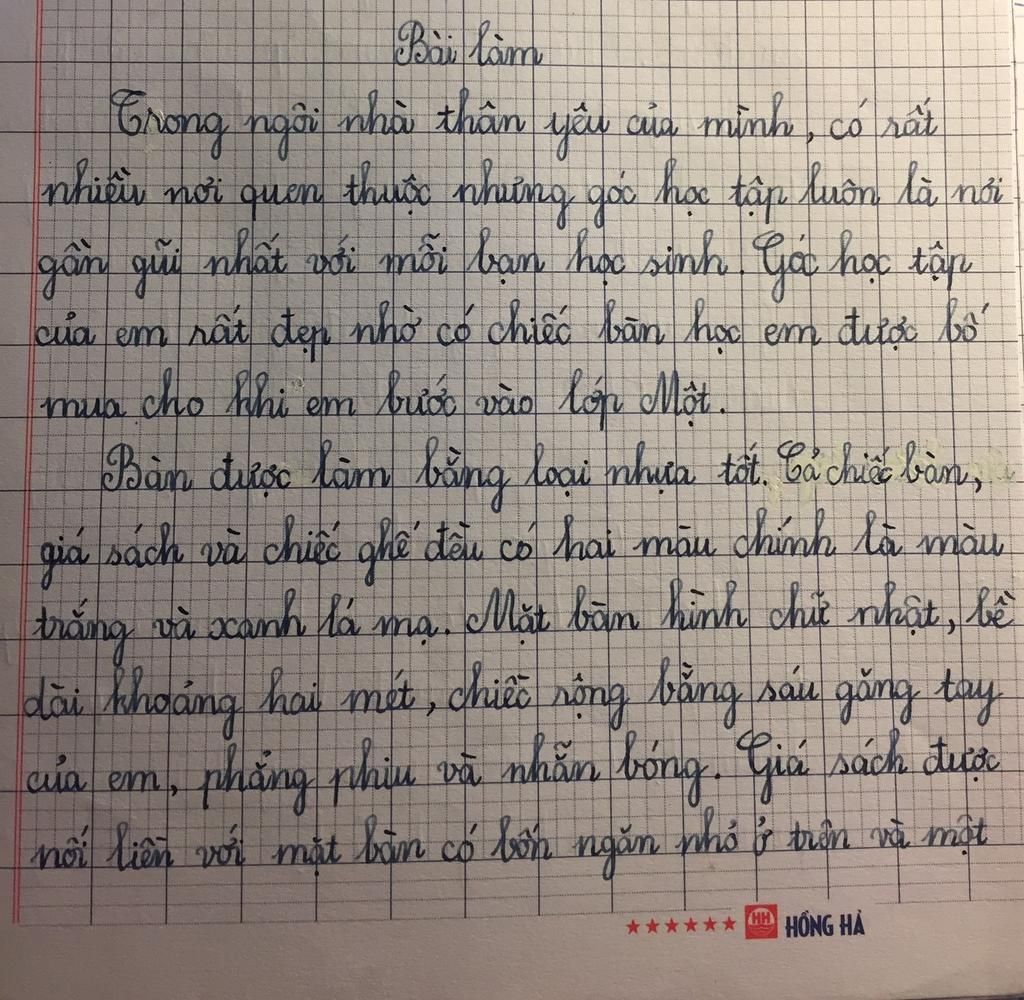 Bài làm
Trong ngôi nhà thân yêu của mình, có rất
nhiều nơi quen thuộc nhưng góc học tập luôn là nơi
gần gũi nhất với mỗi bạn học sinh. Góc học tập
của em rất đẹp nhờ có chiếc bàn học em được bố
mua cho khi em bước vào lớp Một.
Bàn được làm bằng loại nhựa tốt. Cả chiếc bàn,
giá sách và chiếc ghế đều có hai màu chính là màu
trắng và xanh lá mạ. Mặt bàn hình chữ nhật, bề
dài khoảng hai mét, chiều rộng bằng sáu găng tay
của em, phẳng phiu và nhẵn bóng. Giá sách được
nối liền với mặt bàn có bốn ngăn nhỏ ở trên và một
HH HỒNG HÀ